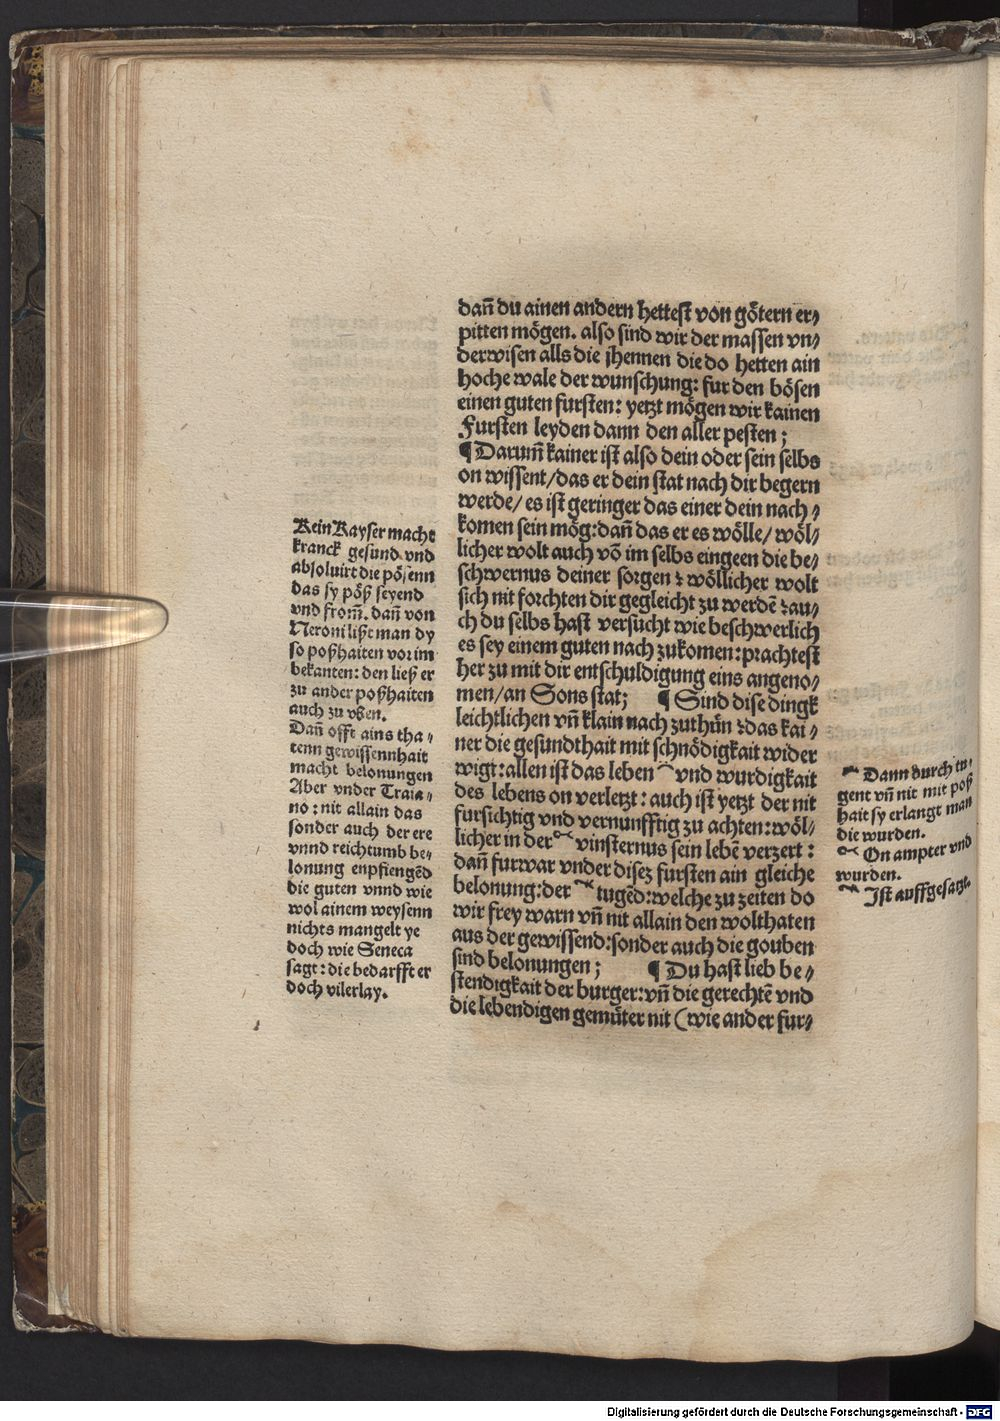 dañ du ainen andern hettest von götern er⸗
pitten mögen. also sind wir der massen vn⸗
derwisen alls die jhennen die do hetten ain
hoche wale der wunschung: fur den bösen
einen guten fursten: yetzt mögen wir kainen
Fursten leyden dann den aller pesten;
¶ Darum̃ kainer ist also dein oder sein selbs
on wissent/das er dein stat nach dir begern
werde/ es ist geringer das einer dein nach⸗
komen sein mög: dañ das er es wölle/ wöl⸗
licher wolt auch võ im selbs eingeen die be⸗
schwernus deiner sorgen ⁊ wöllicher wolt
sich nit forchten dir gegleicht zu werdẽ ⁊ au⸗
ch du selbs hast versucht wie beschwerlich
es sey einem guten nach zukomen: prachtest
her zu mit dir entschuldigung eins angeno⸗
men/an Sons stat; ¶ Sind dise dingk
leichtlichen vñ klain nach zuthůn ⁊ das kai⸗
ner die gesundthait mit schnödigkait wider
wigt: allen ist das leben vnd wurdigkait
des lebens on verletzt: auch ist yetzt der nit
fursichtig vnd vernunfftig zu achten: wöl⸗
licher in der vinsternus sein lebẽ verzert:
dañ furwar vnder disez fursten ain gleiche
belonung: der tugẽd: welche zu zeiten do
wir frey warn vñ nit allain den wolthaten
aus der gewissend: sonder auch die gouben
sind belonungen; ¶ Du hast lieb be⸗
stendigkait der burger: vñ die gerechtẽ vnd
die lebendigen gemůter nit (wie ander fur⸗
Kein Kayser macht
kranck gesund vnd
absoluirt die pösenn
das sy pöß seyend
vnd from̃. dañ von
Neroni lißt man dy
so poßhaiten vor im
bekanten: den ließ er
zu ander poßhaiten
auch zu vßen.
Dañ offt ains tha⸗
tenn gewissennhait
macht belonungen
Aber vnder Traia⸗
no: nit allain das
sonder auch der ere
vnnd reichtumb be⸗
lonung enpfiengẽd
die guten vnnd wie
wol ainem weysenn
nichts mangelt ye
doch wie Seneca
sagt: die bedarfft er
doch vilerlay.
Dann durch tu⸗
gent vñ nit mit poß
hait sy erlangt man
die wurden.
On ampter vnd
wurden.
Ist auffgesatzt.
Digitalisierung gefördert durch die Deutsche Forschungsgemeinschaft - DFG